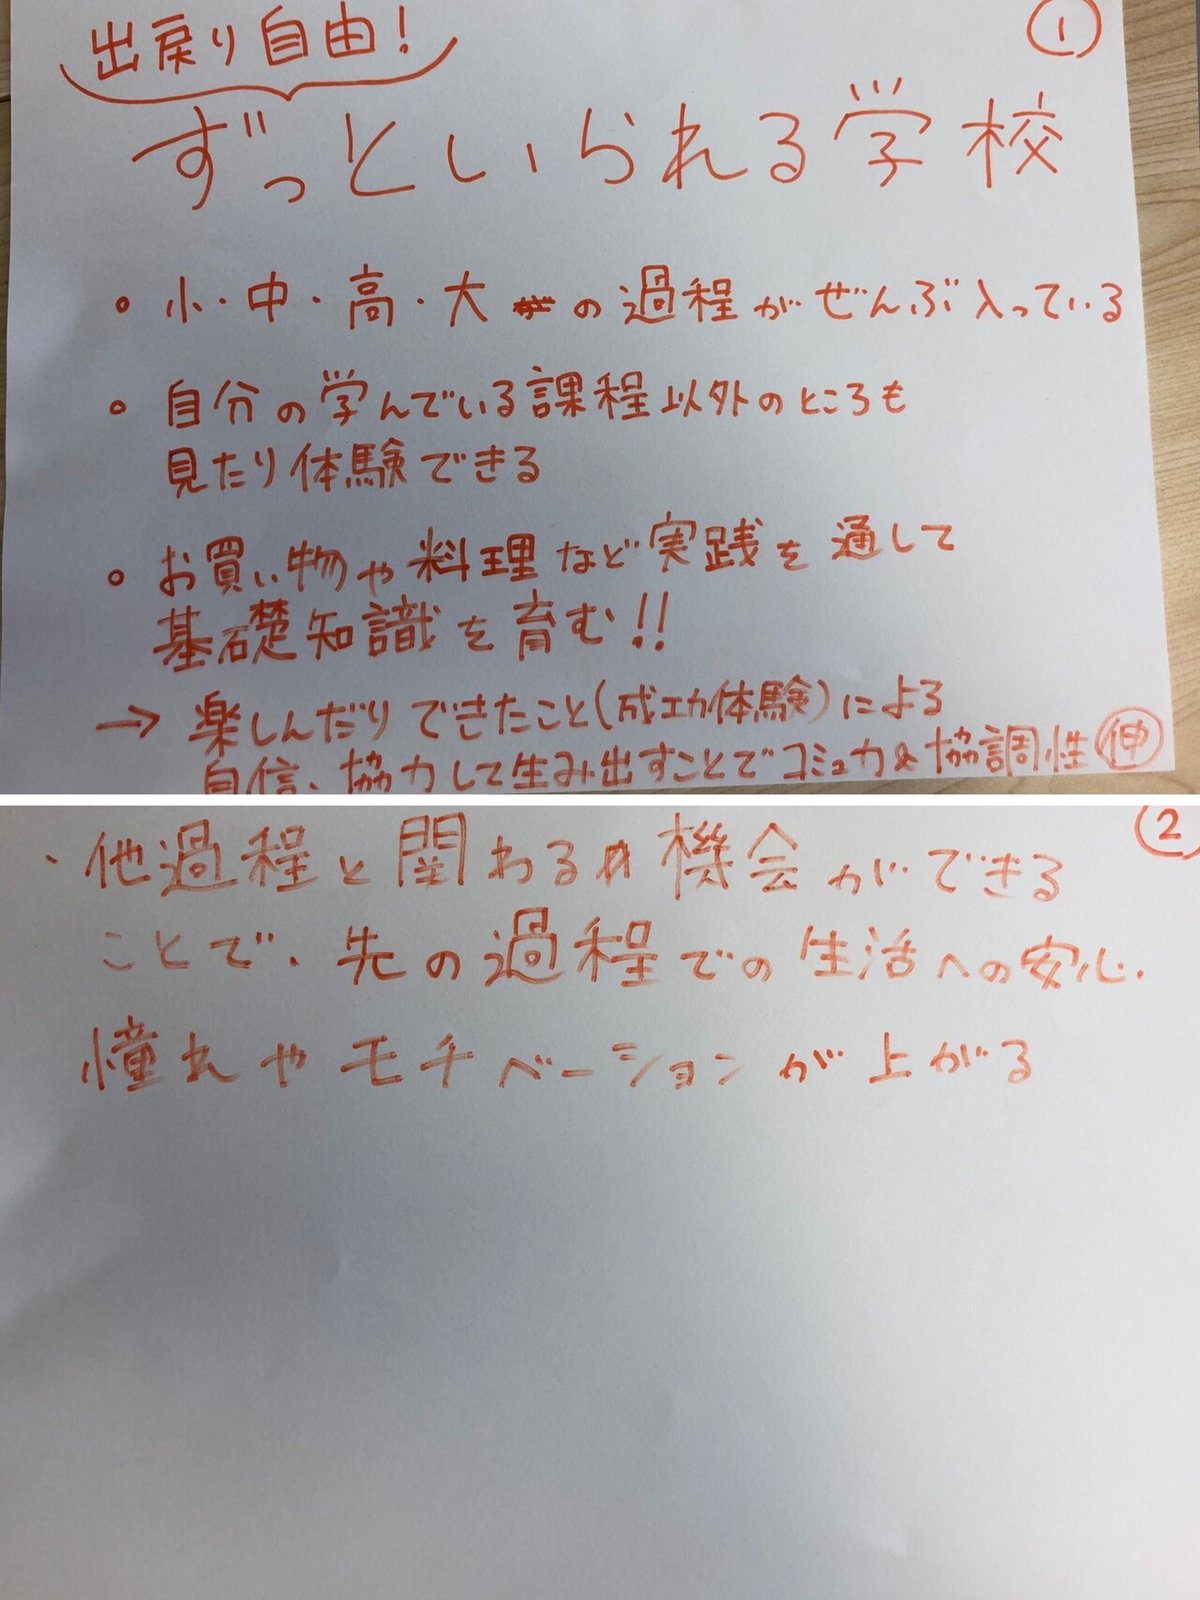 出戻り自由!
①
ずっといられる学校
。小・中・高・大 の過程がぜんぶ入っている
。自分の学んでいる課程以外のところも
見たり体験できる
。お買い物や料理など実践を通して
基礎知識を育む!!
→ 楽しんだりできたこと(成功体験)による
自信、協力して生み出すことでコミュ力&協調性 伸
②
・他過程と関わる機会ができる
ことで、先の過程での生活への安心、
憧れやモチベーションが上がる